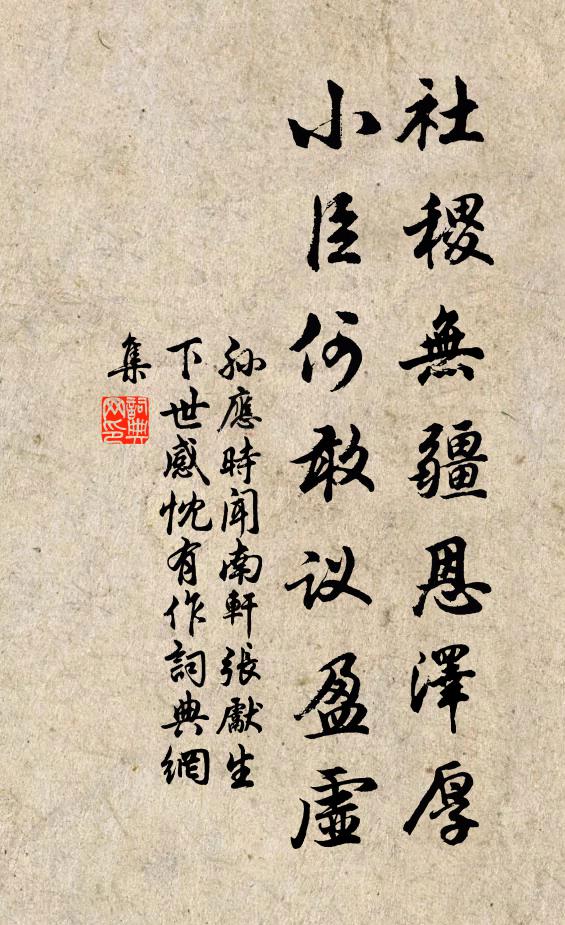 社稷無疆恩澤厚
小臣何敢议盈虛
孙應時闻南軒張獻生
下世感忱有作詞典網
集
詞典网印